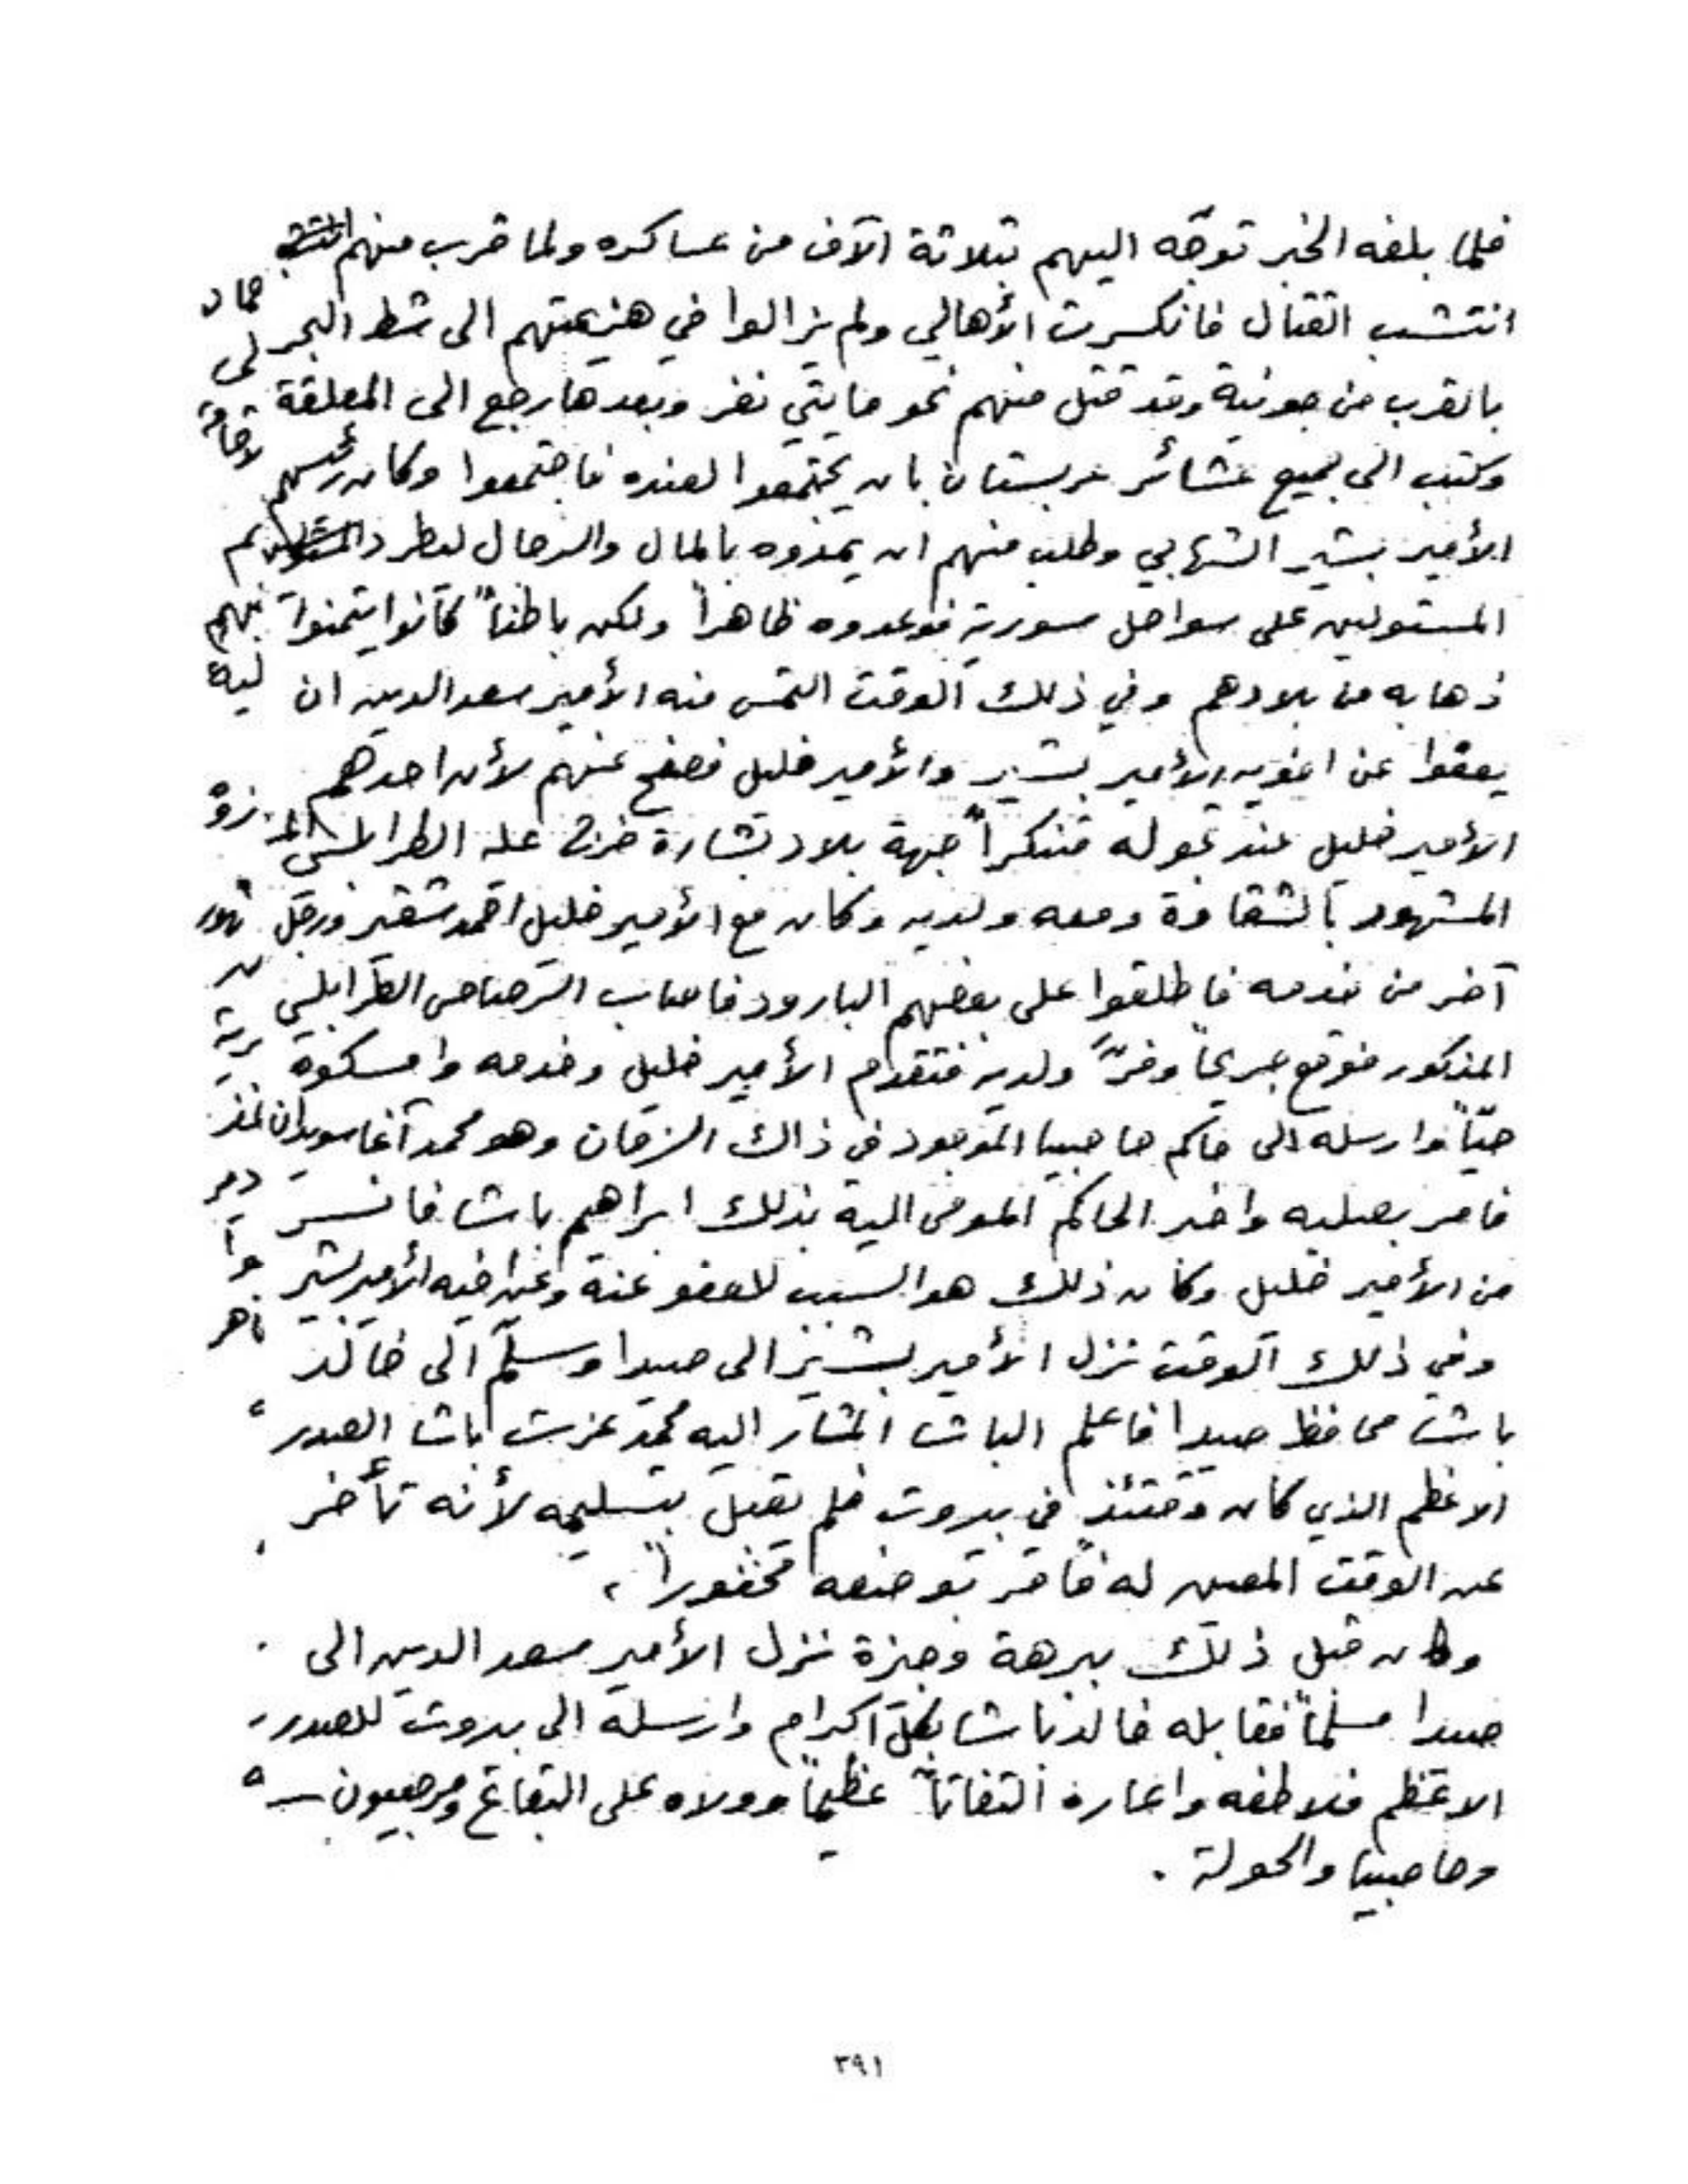 فلما بلغه الخبر توجّه اليهم بثلاثة الآف من عساكره ولما قرب منهم
انتشب القتال فانكسرت الأهالي ولم يزالوا في هزيمتهم الى شط البحر
بالقرب من جونية وقد قتل منهم نحو مايتي نفر وبعدها رجع الى المعلقة
وكتب الى جميع عشائر عربستان بان يجتمعوا لعنده فاجتمعوا وكان رئيسهم
الأمير بشير الشهابي وطلب منهم ان يمدوه بالمال والرجال لطرد
المستولين على سواحل سورية فوعدوه ظاهراً ولكن باطناً كانوا يتمنوا
ذهابه من بلادهم وفي ذلك الوقت التمس منه الأمير سعد الدين ان
يعفوا عن اخويه الأمير بشير والأمير خليل فصفح عنهم لأن احدهم
الأمير خليل عند تجوله متنكراً جهة بلاد بشارة خرج عليه الطرابلسي
المشهور بالشقاوة ومعه ولديه وكان مع الأمير خليل احمد شقير ورجل
آخر من خدمه فاطلقوا على بعضهم البارود فاصاب الرصاص الطرابلسي
المذكور فوقع جريحاً وفرّ ولديه فتقدم الأمير خليل وخدمه وامسكوه
حيّاً وارسله الى حاكم حاصبيا الموجود في ذاك الزمان وهو محمد آغا سويدان
فامر بصلبه واخبر الحاكم المومى اليه بذلك ابراهيم باشا فانسر
من الأمير خليل وكان ذلك هو السبب للعفو عنه وعن اخيه الأمير بشير
وفي ذلك الوقت نزل الأمير بشير الى صيدا وسلّم الى خالد
باشا محافظ صيدا فاعلم الباشا المشار اليه محمد عزت باشا الصدر
الاعظم الذي كان وقتئذ في بيروت فلم يقبل بتسليمه لأنه تأخر
عن الوقت المعين له فامر بوضعه مخفوراً ،
وكان قبل ذلك ببرهة وجيزة نزل الأمير سعد الدين الى
صيدا مسلماً فقابله خالد باشا بكل اكرام وارسله الى بيروت للصدر
الاعظم فلاطفه واعاره التفاتاً عظيماً وولاه على البقاع ومرجعيون
وحاصبيا والحولة .
٣٩١